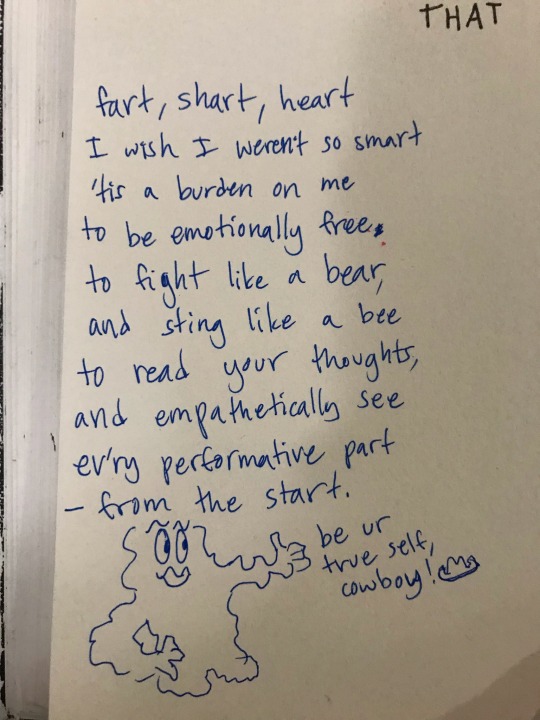 THAT
fart, shart, heart
I wish I weren't so smart
'tis a burden on me
to be emotionally free,
to fight like a bear,
and sting like a bee
to read your thoughts,
and empathetically see
ev'ry performative part
– from the start.
be ur
true self,
cowboy!